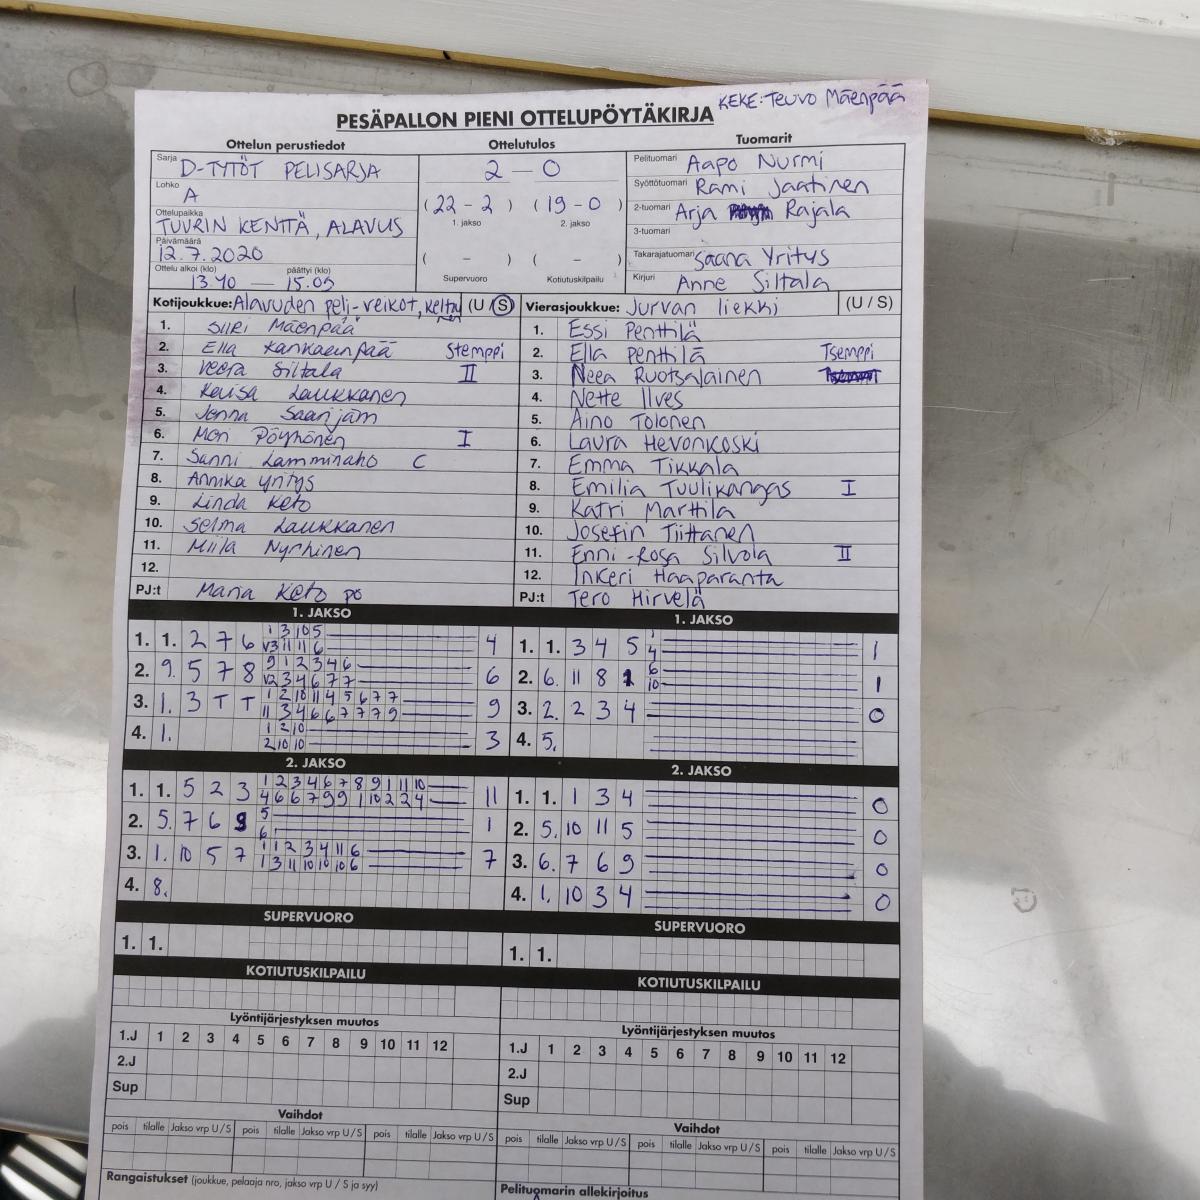 KEKE: Teuvo Mäenpää
PESÄPALLON PIENI OTTELUPÖYTÄKIRJA
Ottelun perustiedot Ottelutulos Tuomarit
Sarja D-TYTÖT PELISARJA
Lohko A
Ottelupaikka TUURIN KENTTÄ, ALAVUS
Päivämäärä 12.7.2020
Ottelu alkoi (klo) päättyi (klo)
13.40 — 15.05
2 — 0
(22 - 2) (19 - 0)
1. jakso 2. jakso
( - ) ( - )
Supervuoro Kotiutuskilpailu
Pelituomari Aapo Nurmi
Syöttötuomari Rami Jaatinen
2-tuomari Arja Rajala
3-tuomari
Takarajatuomari Saana Yritys
Kirjuri Anne Siltala
Kotijoukkue: Alavuden peli-veikot, (U / S)
1. Siiri Mäenpää
2. Ella Kankaanpää Stemppi
3. Veera Siltala II
4. Laukkanen
5. Jenna
6. Pöyhönen I
7. Sanni Lamminaho C
8. Annika Yritys
9. Linda Keto
10. Selma Laukkanen
11. Miila Nyrhinen
12.
PJ:t Maria Keto po
Vierasjoukkue: Jurvan liekki (U / S)
1. Essi Penttilä
2. Ella Penttilä Tsemppi
3. Neea Ruotsalainen
4. Nette Ilves
5. Aino Tolonen
6. Laura Hevonkoski
7. Emma Tikkala
8. Emilia Tuulikangas I
9. Katri Marttila
10. Josefin Tiittanen
11. Enni-Rosa Silvola II
12. Inkeri Haaparanta
PJ:t Tero Hirvelä
1. JAKSO
1. 1. 2 7 6 1 3 10 5 4
V3 11 11 6
2. 9. 5 7 8 9 1 2 3 4 6 6
V2 3 4 6 7 7
3. 1. 3 T T 1 2 10 11 4 5 6 7 7 9
11 3 4 6 6 7 7 7 9
4. 1. 1 2 10 3
2 10 10
2. JAKSO
1. 1. 5 2 3 1 2 3 4 6 7 8 9 1 11 10 11
4 6 6 7 9 9 1 10 2 2 4
2. 5. 7 6 5 1
6
3. 1. 10 5 7 1 1 2 3 4 11 6 7
1 3 11 10 10 10 6
4. 8.
SUPERVUORO
1. 1.
KOTIUTUSKILPAILU
Lyöntijärjestyksen muutos
1.J 1 2 3 4 5 6 7 8 9 10 11 12
2.J
Sup
Vaihdot
pois tilalle Jakso vrp U/S pois tilalle Jakso vrp U/S pois tilalle Jakso vrp U/S
Rangaistukset (joukkue, pelaaja nro, jakso vrp U / S ja syy)
1. JAKSO
1. 1. 3 4 5 1 1
4
2. 6. 11 8 1 6 1
10
3. 2. 2 3 4 0
4. 5.
2. JAKSO
1. 1. 1 3 4 0
2. 5. 10 11 5 0
3. 6. 7 6 9 0
4. 1. 10 3 4 0
SUPERVUORO
1. 1.
KOTIUTUSKILPAILU
Lyöntijärjestyksen muutos
1.J 1 2 3 4 5 6 7 8 9 10 11 12
2.J
Sup
Vaihdot
pois tilalle Jakso vrp U/S pois tilalle Jakso vrp U/S pois tilalle Jakso vrp U/S
Pelituomarin allekirjoitus